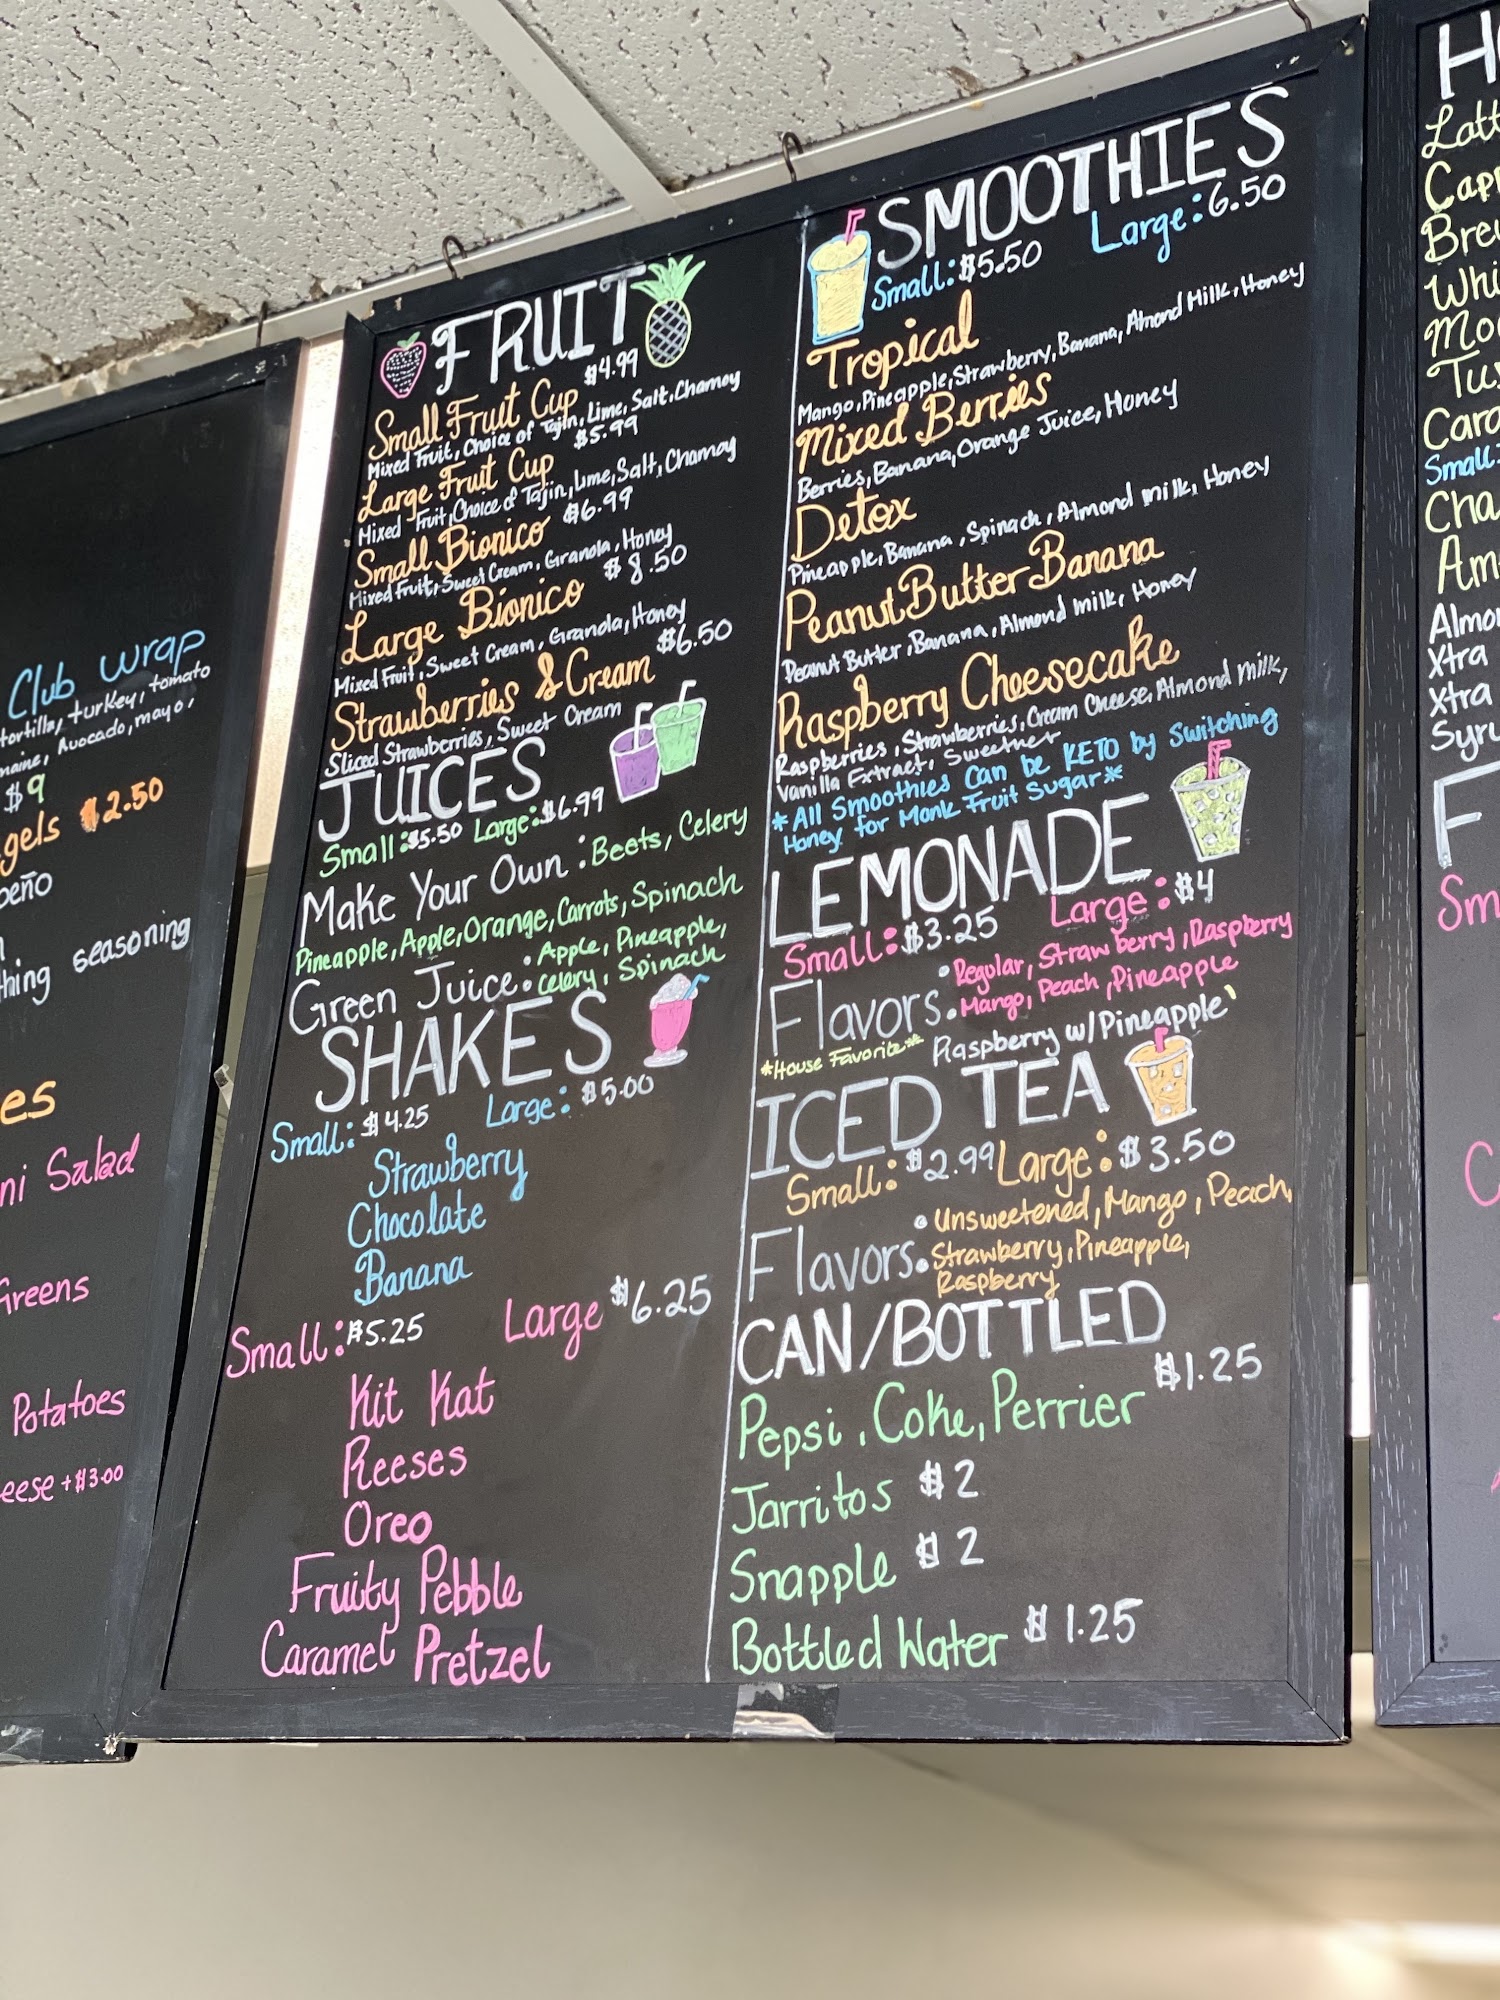 Club Wrap
tortilla, turkey, tomato
Avocado, mayo,
$9
$2.50
seasoning
Salad
Greens
Potatoes
+$3.00
FRUIT
Small Fruit Cup $4.99
Mixed Fruit, Choice of Tajin, Lime, Salt, Chamoy
Large Fruit Cup $5.99
Mixed Fruit, Choice of Tajin, Lime, Salt, Chamoy
Small Bionico $6.99
Mixed Fruit, Sweet Cream, Granola, Honey
Large Bionico $8.50
Mixed Fruit, Sweet Cream, Granola, Honey
Strawberries & Cream $6.50
Sliced Strawberries, Sweet Cream
JUICES
Small: $5.50 Large: $6.99
Make Your Own: Beets, Celery
Pineapple, Apple, Orange, Carrots, Spinach
Green Juice: Apple, Pineapple,
Celery, Spinach
SHAKES
Small: $4.25 Large: $5.00
Strawberry
Chocolate
Banana
Small: $5.25 Large $6.25
Kit Kat
Reeses
Oreo
Fruity Pebble
Caramel Pretzel
SMOOTHIES
Small: $5.50 Large: 6.50
Tropical
Mango, Pineapple, Strawberry, Banana, Almond Milk, Honey
Mixed Berries
Berries, Banana, Orange Juice, Honey
Detox
Pineapple, Banana, Spinach, Almond milk, Honey
Peanut Butter Banana
Peanut Butter, Banana, Almond milk, Honey
Raspberry Cheesecake
Raspberries, Strawberries, Cream Cheese, Almond milk,
Vanilla Extract, Sweetner
*All Smoothies Can be KETO by Switching
Honey for Monk Fruit Sugar*
LEMONADE
Small: $3.25 Large: $4
Flavors: Regular, Strawberry, Raspberry
Mango, Peach, Pineapple
*House Favorite* Raspberry w/Pineapple
ICED TEA
Small: $2.99 Large: $3.50
Flavors: Unsweetened, Mango, Peach,
Strawberry, Pineapple,
Raspberry
CAN/BOTTLED
Pepsi, Coke, Perrier $1.25
Jarritos $2
Snapple $2
Bottled Water $1.25
Small:
Xtra
Xtra